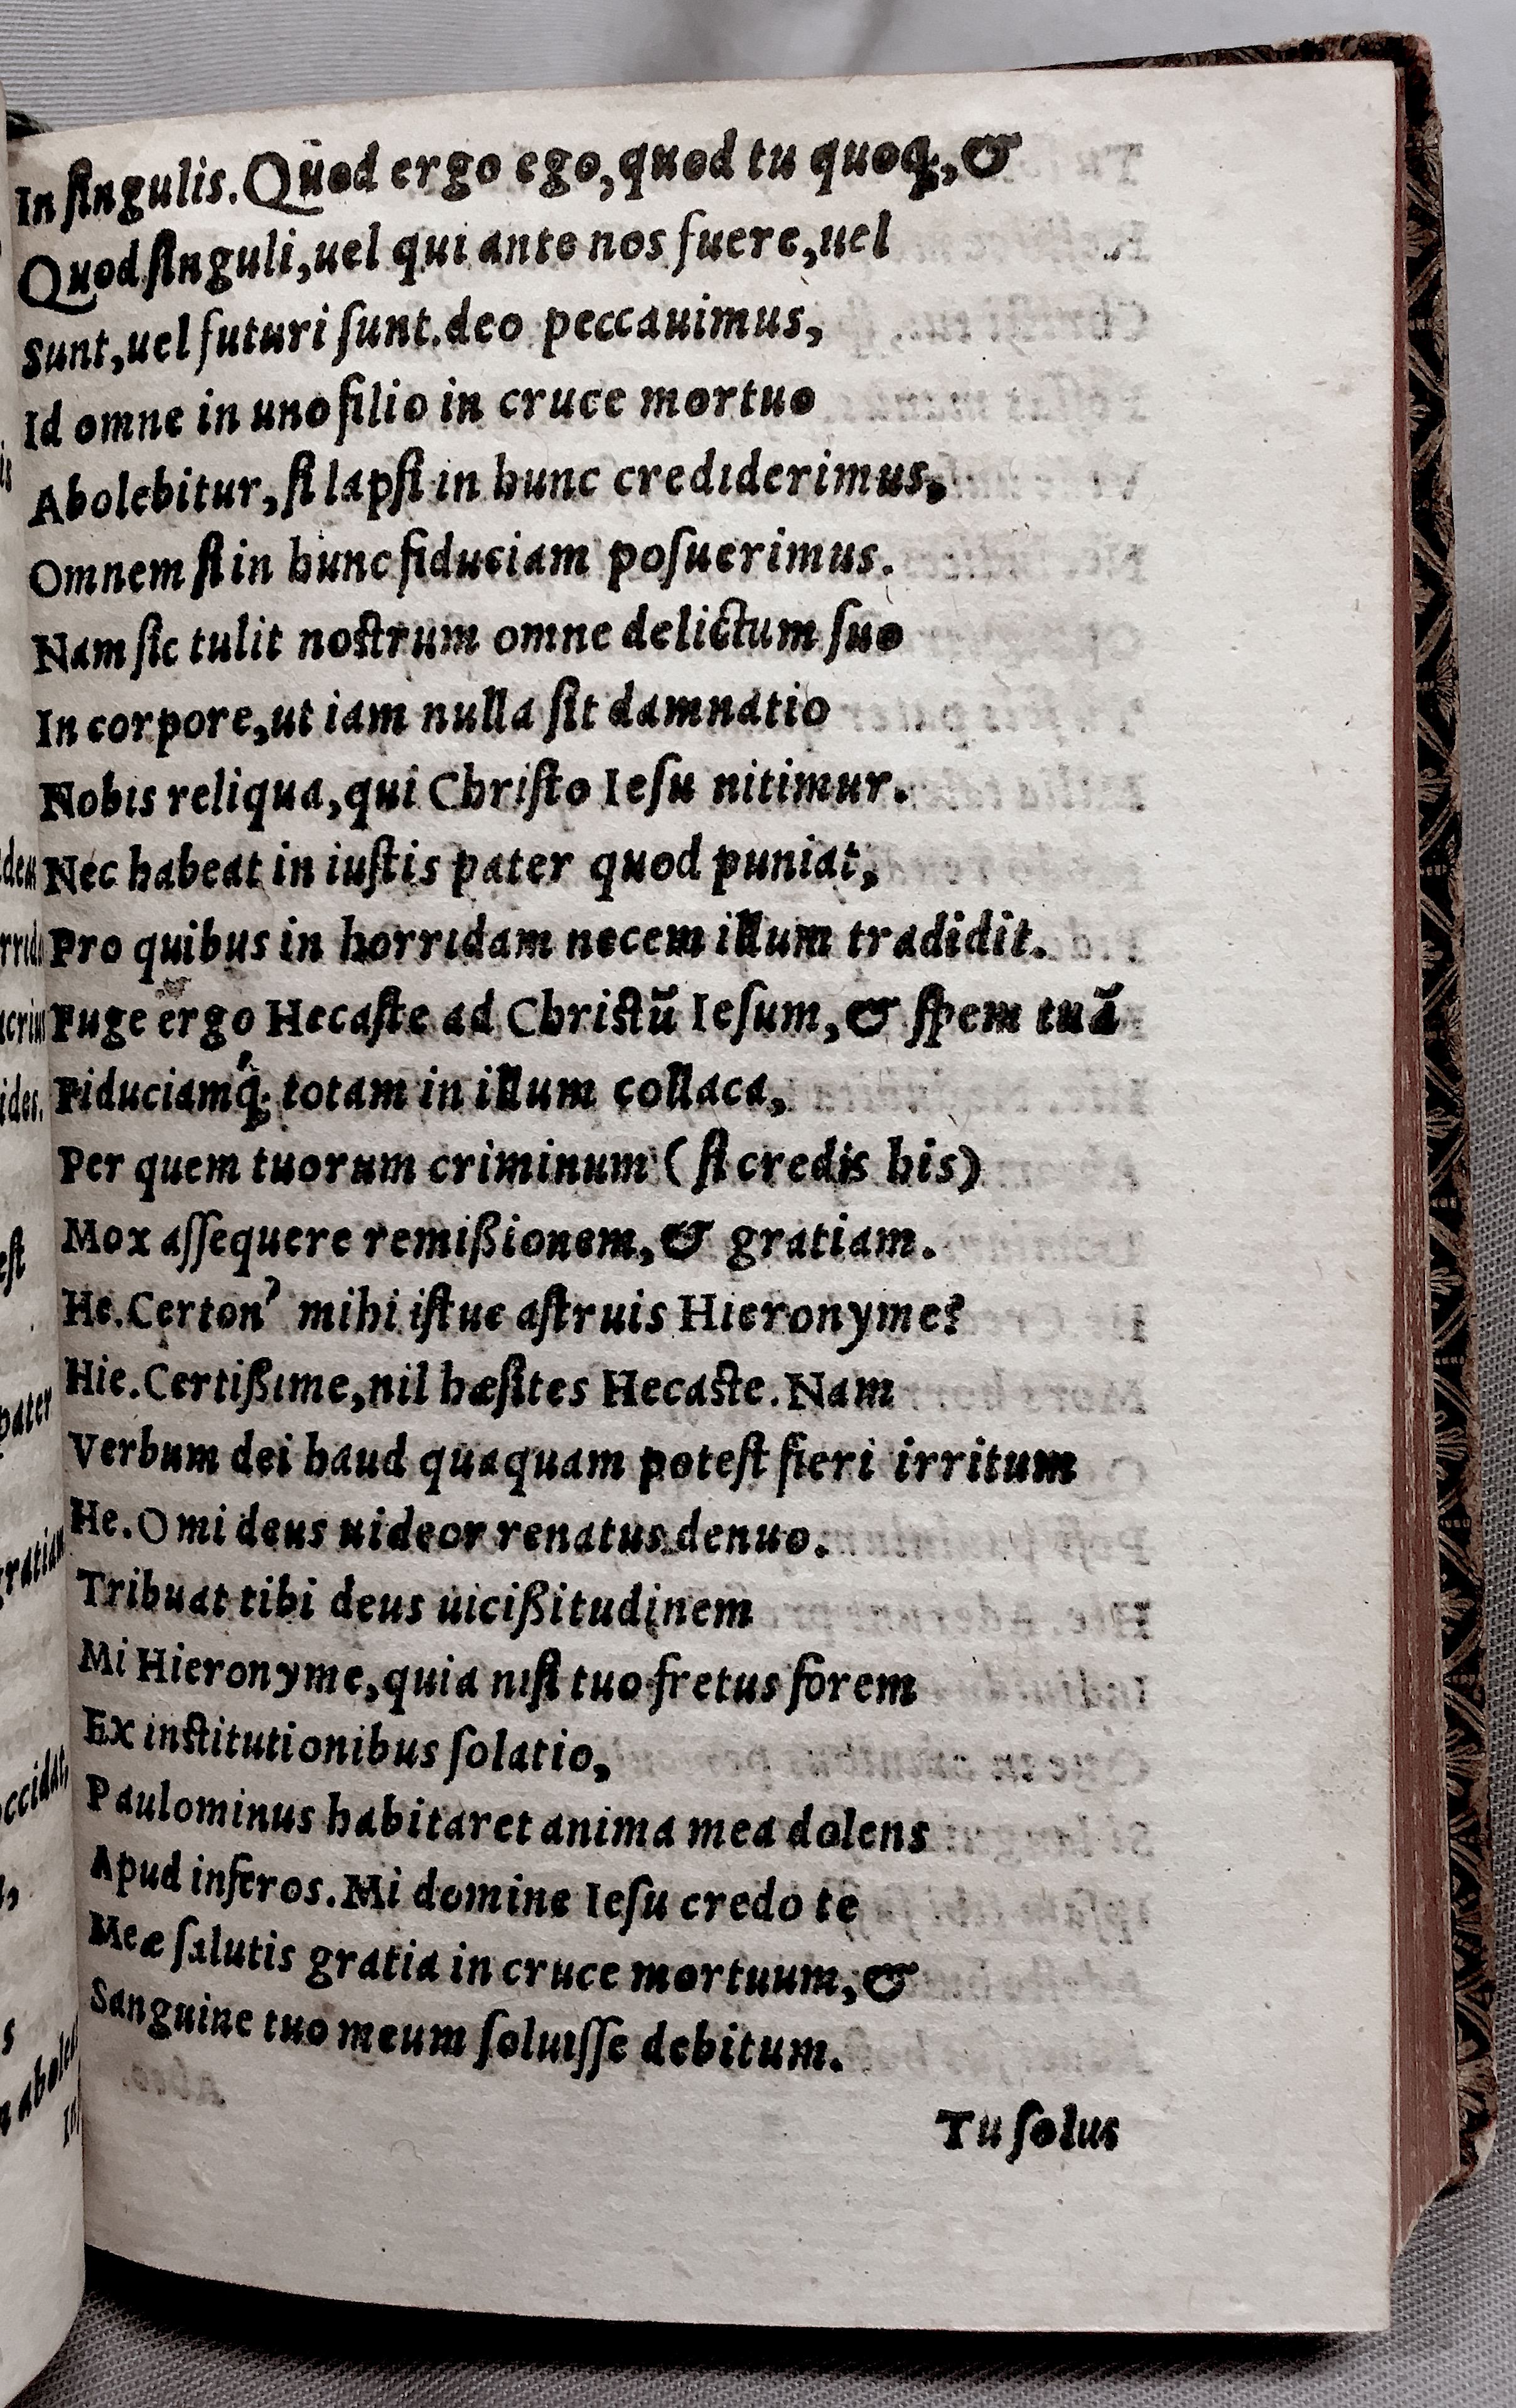 In ſingulis. Quod ergo ego, quod tu quoq;, &
Quod ſinguli, uel qui ante nos fuere, uel
Sunt, uel futuri ſunt. deo peccauimus,
Id omne in uno filio in cruce mortuo
Abolebitur, ſi lapſi in hunc crediderimus,
Omnem ſi in hunc fiduciam poſuerimus.
Nam ſic tulit noſtrum omne delictum ſuo
In corpore, ut iam nulla ſit damnatio
Nobis reliqua, qui Chriſto Ieſu nitimur.
Nec habeat in iuſtis pater quod puniat,
Pro quibus in horridam necem illum tradidit.
Fuge ergo Hecaſte ad Chriſtū Ieſum, & ſpem tuā
Fiduciamq́; totam in illum collaca,
Per quem tuorum criminum ( ſi credis his)
Mox aſſequere remißionem, & gratiam.
He. Certon' mihi iſtuc aſtruis Hieronyme?
Hie. Certißime, nil hæſites Hecaſte. Nam
Verbum dei haud quaquam poteſt fieri irritum
He. O mi deus uideor renatus denuo.
Tribuat tibi deus uicißitudinem
Mi Hieronyme, quia niſi tuo fretus forem
Ex inſtitutionibus ſolatio,
Paulominus habitaret anima mea dolens
Apud inferos. Mi domine Ieſu credo te
Meæ ſalutis gratia in cruce mortuum, &
Sanguine tuo meum ſoluiſſe debitum.
Tu ſolus